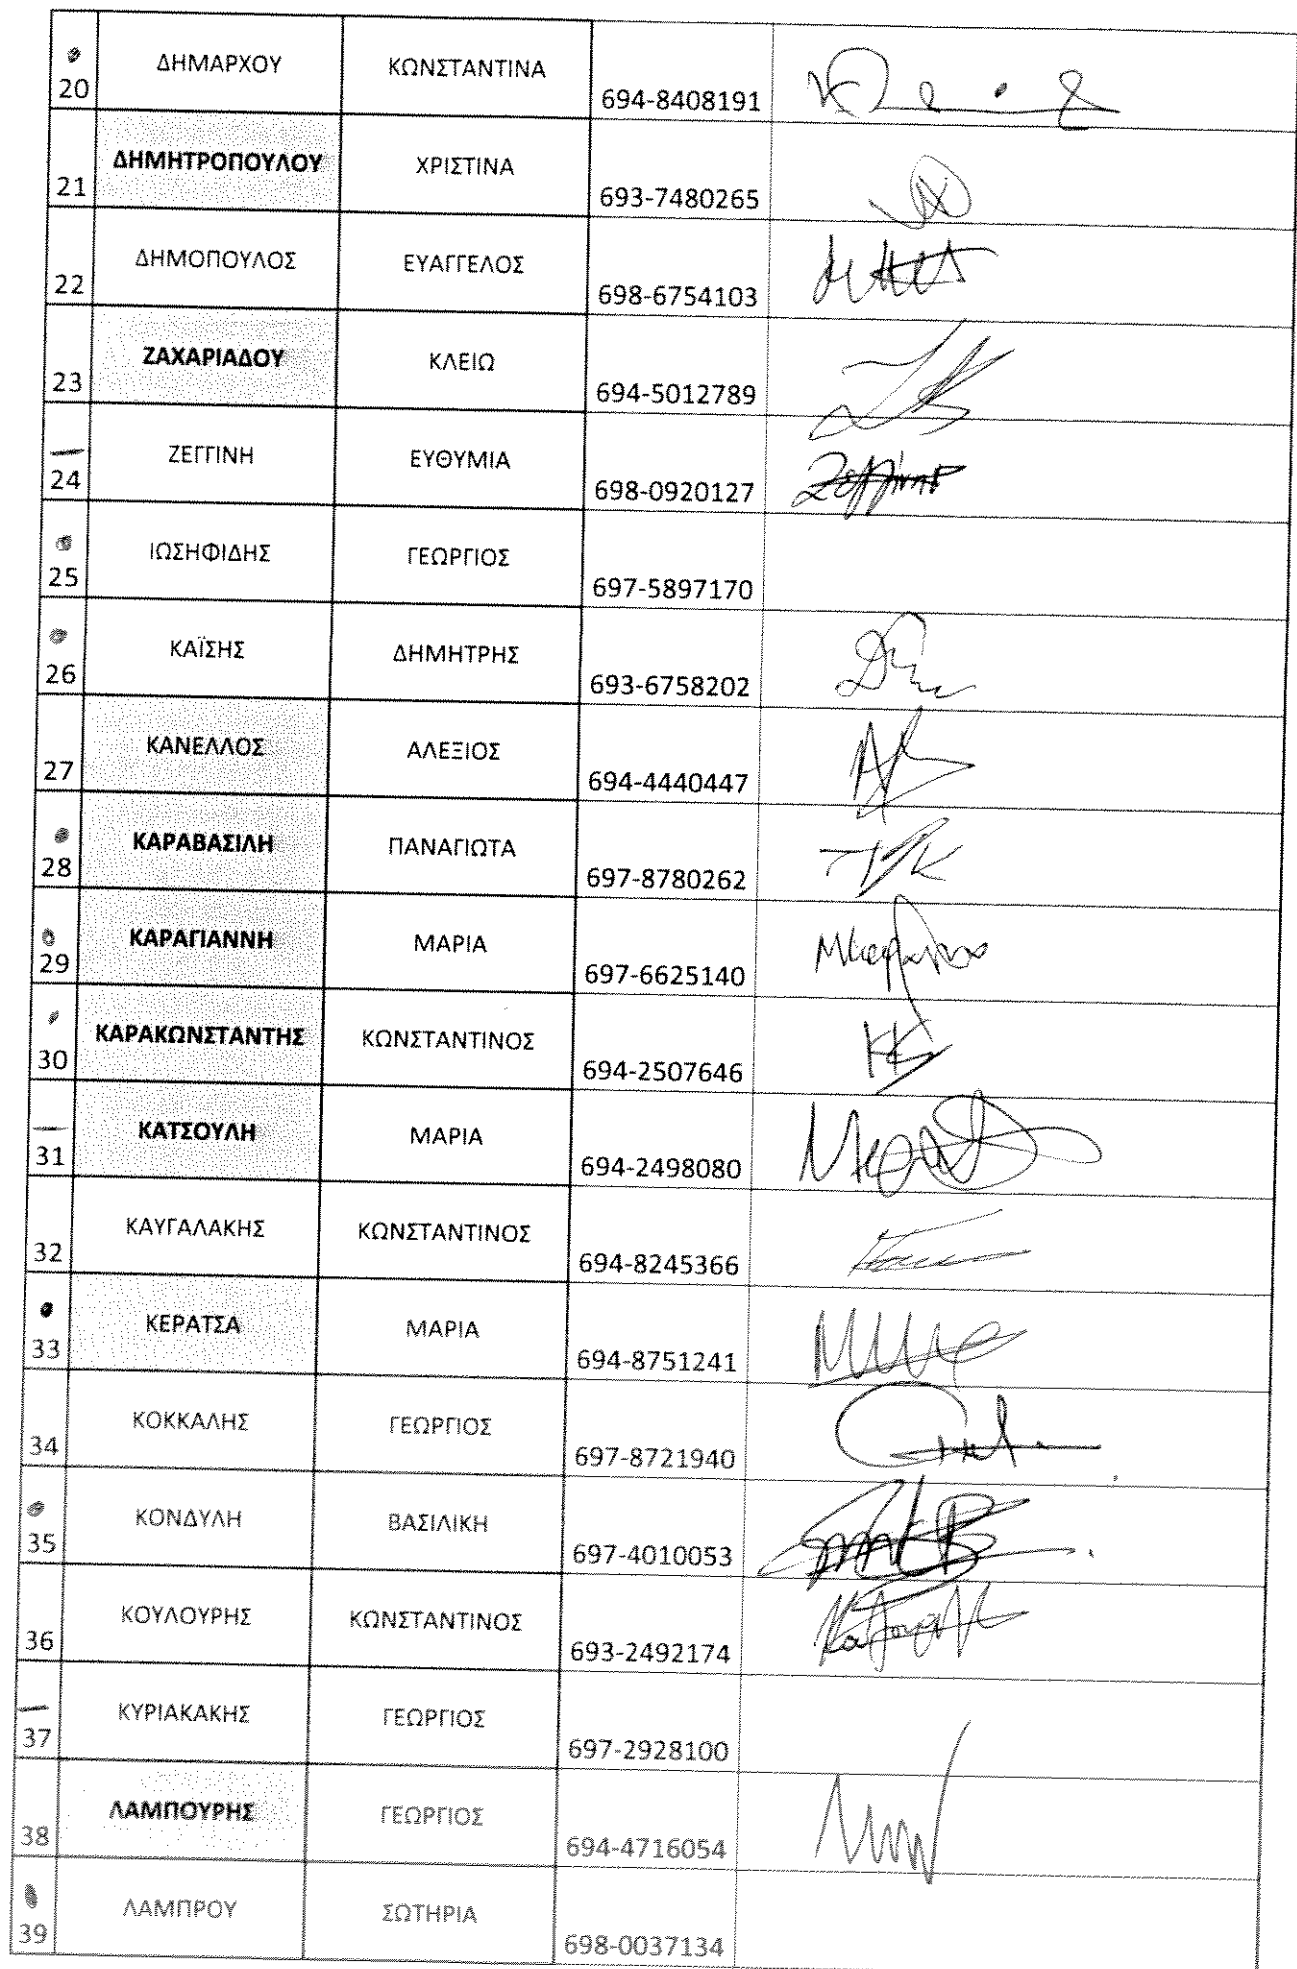 20 ΔΗΜΑΡΧΟΥ ΚΩΝΣΤΑΝΤΙΝΑ 694-8408191
21 ΔΗΜΗΤΡΟΠΟΥΛΟΥ ΧΡΙΣΤΙΝΑ 693-7480265
22 ΔΗΜΟΠΟΥΛΟΣ ΕΥΑΓΓΕΛΟΣ 698-6754103
23 ΖΑΧΑΡΙΑΔΟΥ ΚΛΕΙΩ 694-5012789
24 ΖΕΓΓΙΝΗ ΕΥΘΥΜΙΑ 698-0920127
25 ΙΩΣΗΦΙΔΗΣ ΓΕΩΡΓΙΟΣ 697-5897170
26 ΚΑΪΣΗΣ ΔΗΜΗΤΡΗΣ 693-6758202
27 ΚΑΝΕΛΛΟΣ ΑΛΕΞΙΟΣ 694-4440447
28 ΚΑΡΑΒΑΣΙΛΗ ΠΑΝΑΓΙΩΤΑ 697-8780262
29 ΚΑΡΑΓΙΑΝΝΗ ΜΑΡΙΑ 697-6625140
30 ΚΑΡΑΚΩΝΣΤΑΝΤΗΣ ΚΩΝΣΤΑΝΤΙΝΟΣ 694-2507646
31 ΚΑΤΣΟΥΛΗ ΜΑΡΙΑ 694-2498080
32 ΚΑΥΓΑΛΑΚΗΣ ΚΩΝΣΤΑΝΤΙΝΟΣ 694-8245366
33 ΚΕΡΑΤΣΑ ΜΑΡΙΑ 694-8751241
34 ΚΟΚΚΑΛΗΣ ΓΕΩΡΓΙΟΣ 697-8721940
35 ΚΟΝΔΥΛΗ ΒΑΣΙΛΙΚΗ 697-4010053
36 ΚΟΥΛΟΥΡΗΣ ΚΩΝΣΤΑΝΤΙΝΟΣ 693-2492174
37 ΚΥΡΙΑΚΑΚΗΣ ΓΕΩΡΓΙΟΣ 697-2928100
38 ΛΑΜΠΟΥΡΗΣ ΓΕΩΡΓΙΟΣ 694-4716054
39 ΛΑΜΠΡΟΥ ΣΩΤΗΡΙΑ 698-0037134